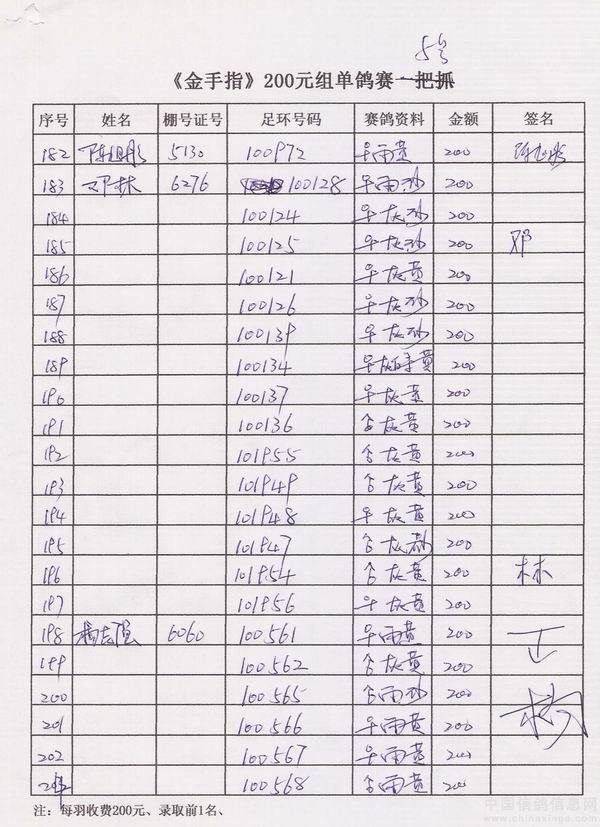 5号
《金手指》200元组单鸽赛一把抓
序号 姓名 棚号证号 足环号码 赛鸽资料 金额 签名
182 陈旭彤 5130 100972 早雨黄 200
183 邓林 6276 100128 早雨砂 200
184 100124 早灰砂 200
185 100125 早灰砂 200 邓
186 100121 早灰黄 200
187 100126 早灰砂 200
188 100139 早灰砂 200
189 100134 黄 200
190 100137 早灰黄 200
191 100136 合灰黄 200
192 101955 合灰黄 200
193 101949 合灰黄 200
194 101948 早灰黄 200
195 101947 合灰砂 200
196 101954 合灰黄 200 林
197 101956 早灰黄 200
198 杨志强 6060 100561 早雨黄 200
199 100562 合灰黄 200
200 100565 合雨砂 200
201 100566 早雨黄 200
202 100567 早雨黄 200
100568 合雨黄 200
注：每羽收费200元、录取前1名、
中国信鸽信息网
www.chinaxinge.com